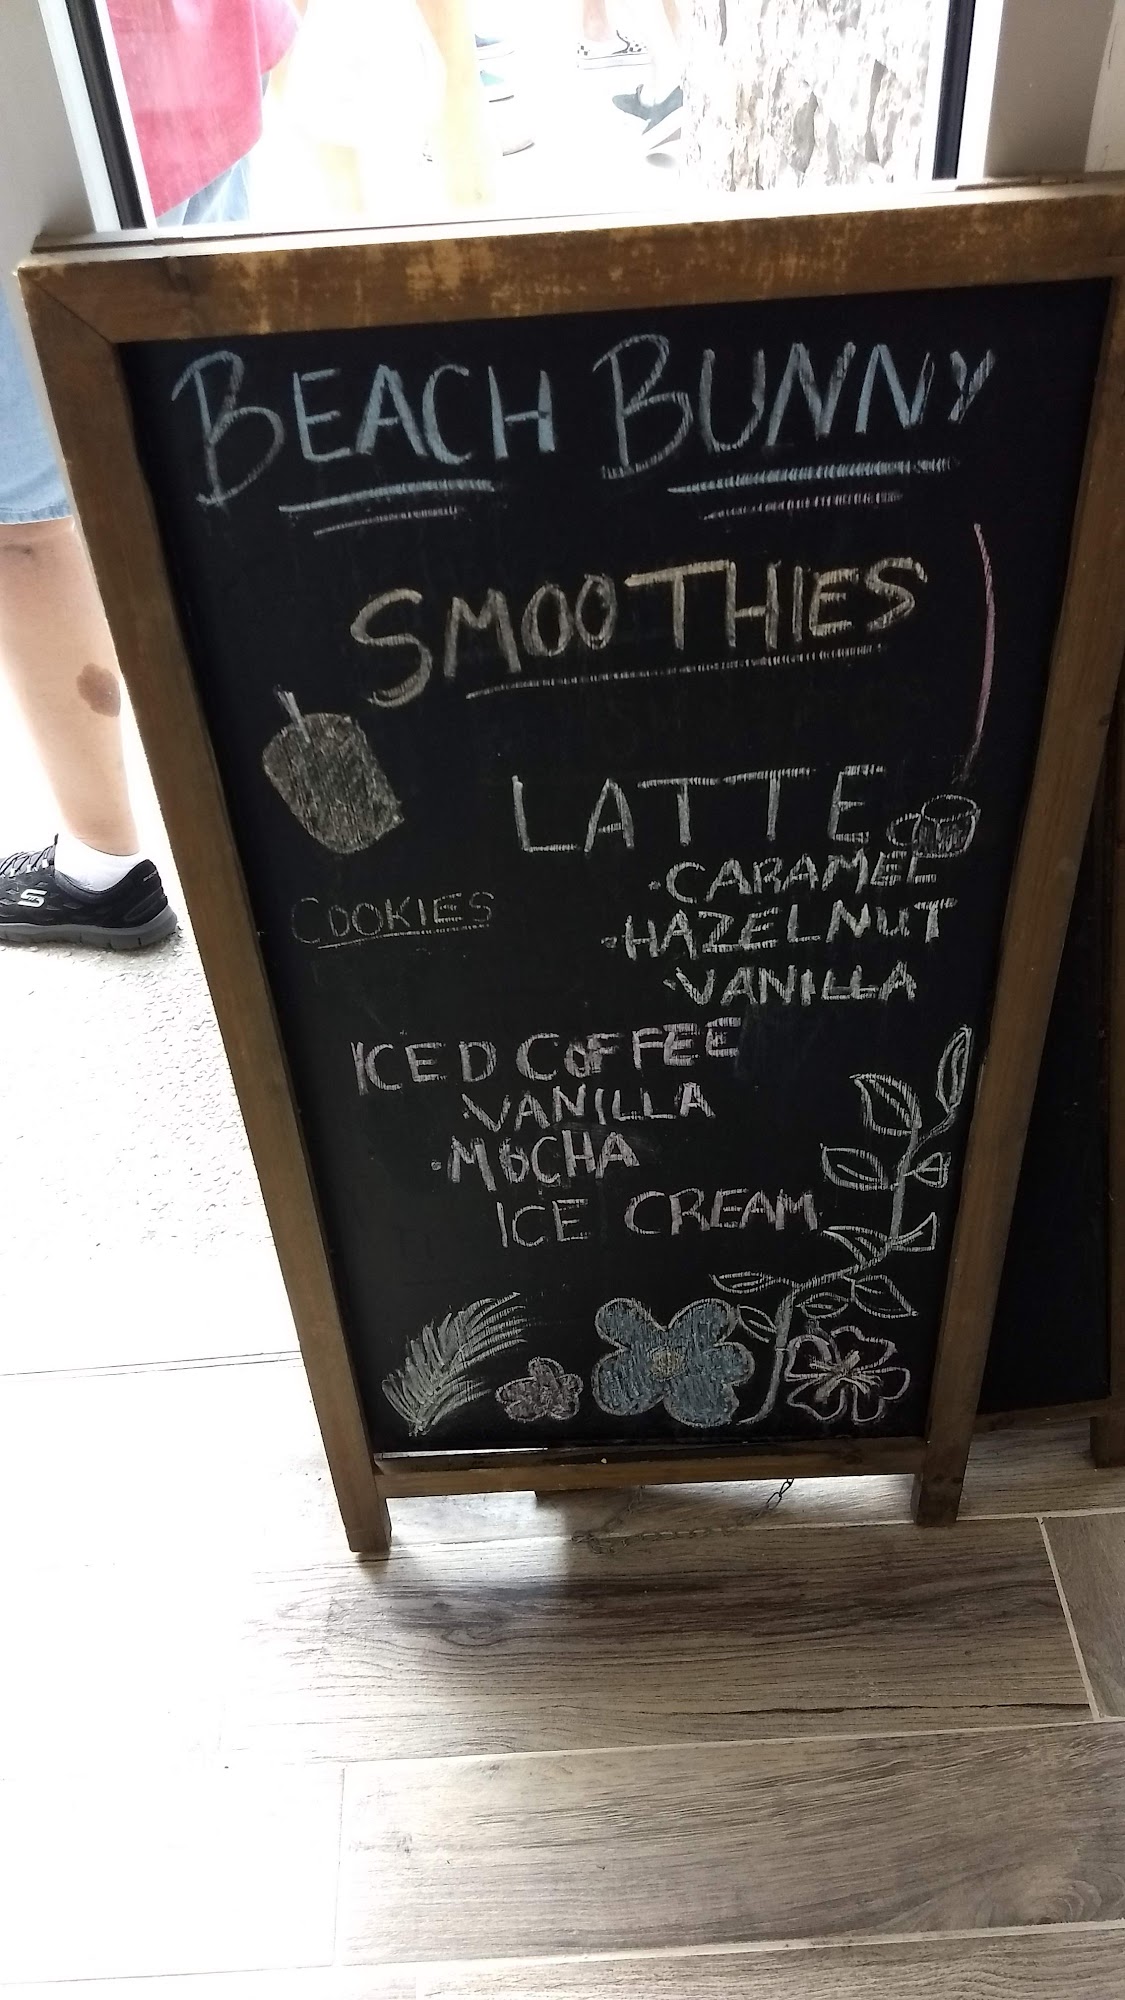 BEACH BUNNY
SMOOTHIES
LATTE
·CARAMEL
·HAZELNUT
·VANILLA
COOKIES
ICED COFFEE
·VANILLA
·MOCHA
ICE CREAM
S